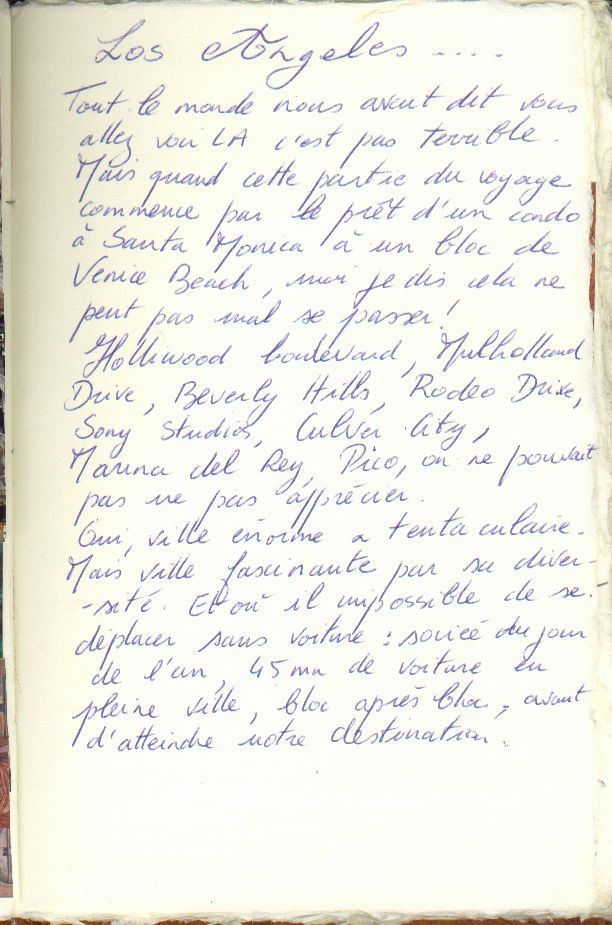 Los Angeles ....
Tout le monde nous avait dit vous
allez voir LA c'est pas terrible.
Mais quand cette partie du voyage
commence par le prêt d'un condo
à Santa Monica à un bloc de
Venice Beach, moi je dis cela ne
peut pas mal se passer !
Holliwood boulevard, Mulholland
Drive, Beverly Hills, Rodeo Drive,
Sony Studios, Culver City,
Marina del Rey, Pico, on ne pouvait
pas ne pas apprécier.
Oui, ville énorme a tentaculaire.
Mais ville fascinante par sa diver-
-sité. Et où il impossible de se
déplacer sans voiture : soirée du jour
de l'an, 45 mn de voiture en
pleine ville, bloc après bloc, avant
d'atteindre notre destination.